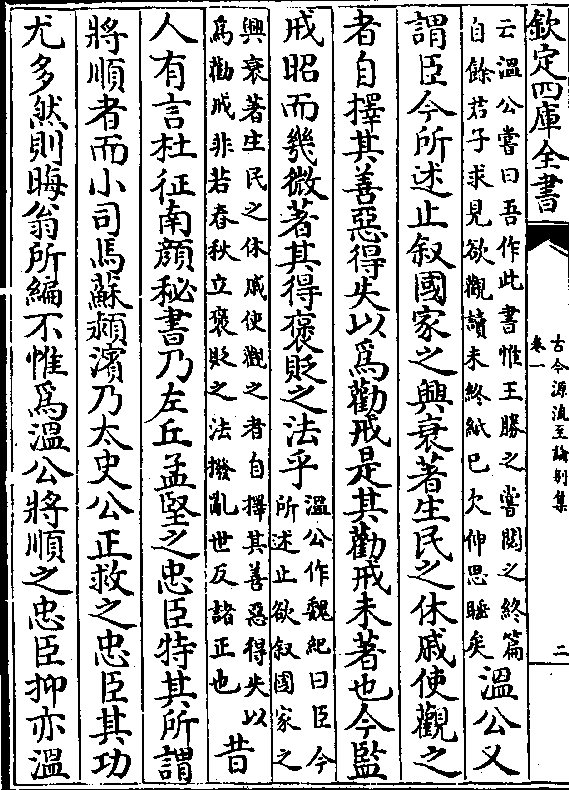 欽定四庫全書
古今源流至論別集
卷一
二
云溫公嘗曰吾作此書惟王勝之嘗閱之終篇
自餘若子求見欲觀讀未終紙已欠伸思睡矣
溫公又
謂臣今所述止叙國家之興衰著生民之休戚使觀之
者自擇其善惡得失以為勸戒是其勸戒未著也今監
戒昭而幾微著其得褒貶之法乎
溫公作魏紀曰臣今
所述止欲叙國家之
興衰著生民之休戚使觀之者自擇其善惡得失以
為勸戒非若春秋立褒貶之法撥亂世反諸正也
昔
人有言杜征南顔秘書乃左丘孟堅之忠臣特其所謂
將順者而小司馬蘇潁濱乃太史公正救之忠臣其功
尤多然則晦翁所編不惟為溫公將順之忠臣抑亦溫